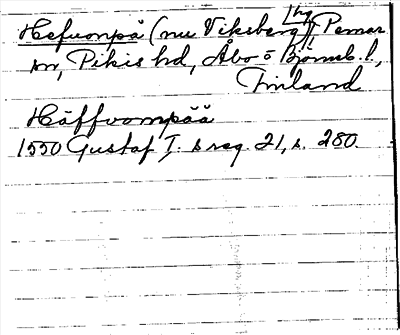 Hefvonpä (nu Viksberg hg), Pemar
sn, Pikis hd, Åbo o Björneb. l.,
Finland
Häffvompää
1550 Gustaf I. s reg. 21, s. 280.